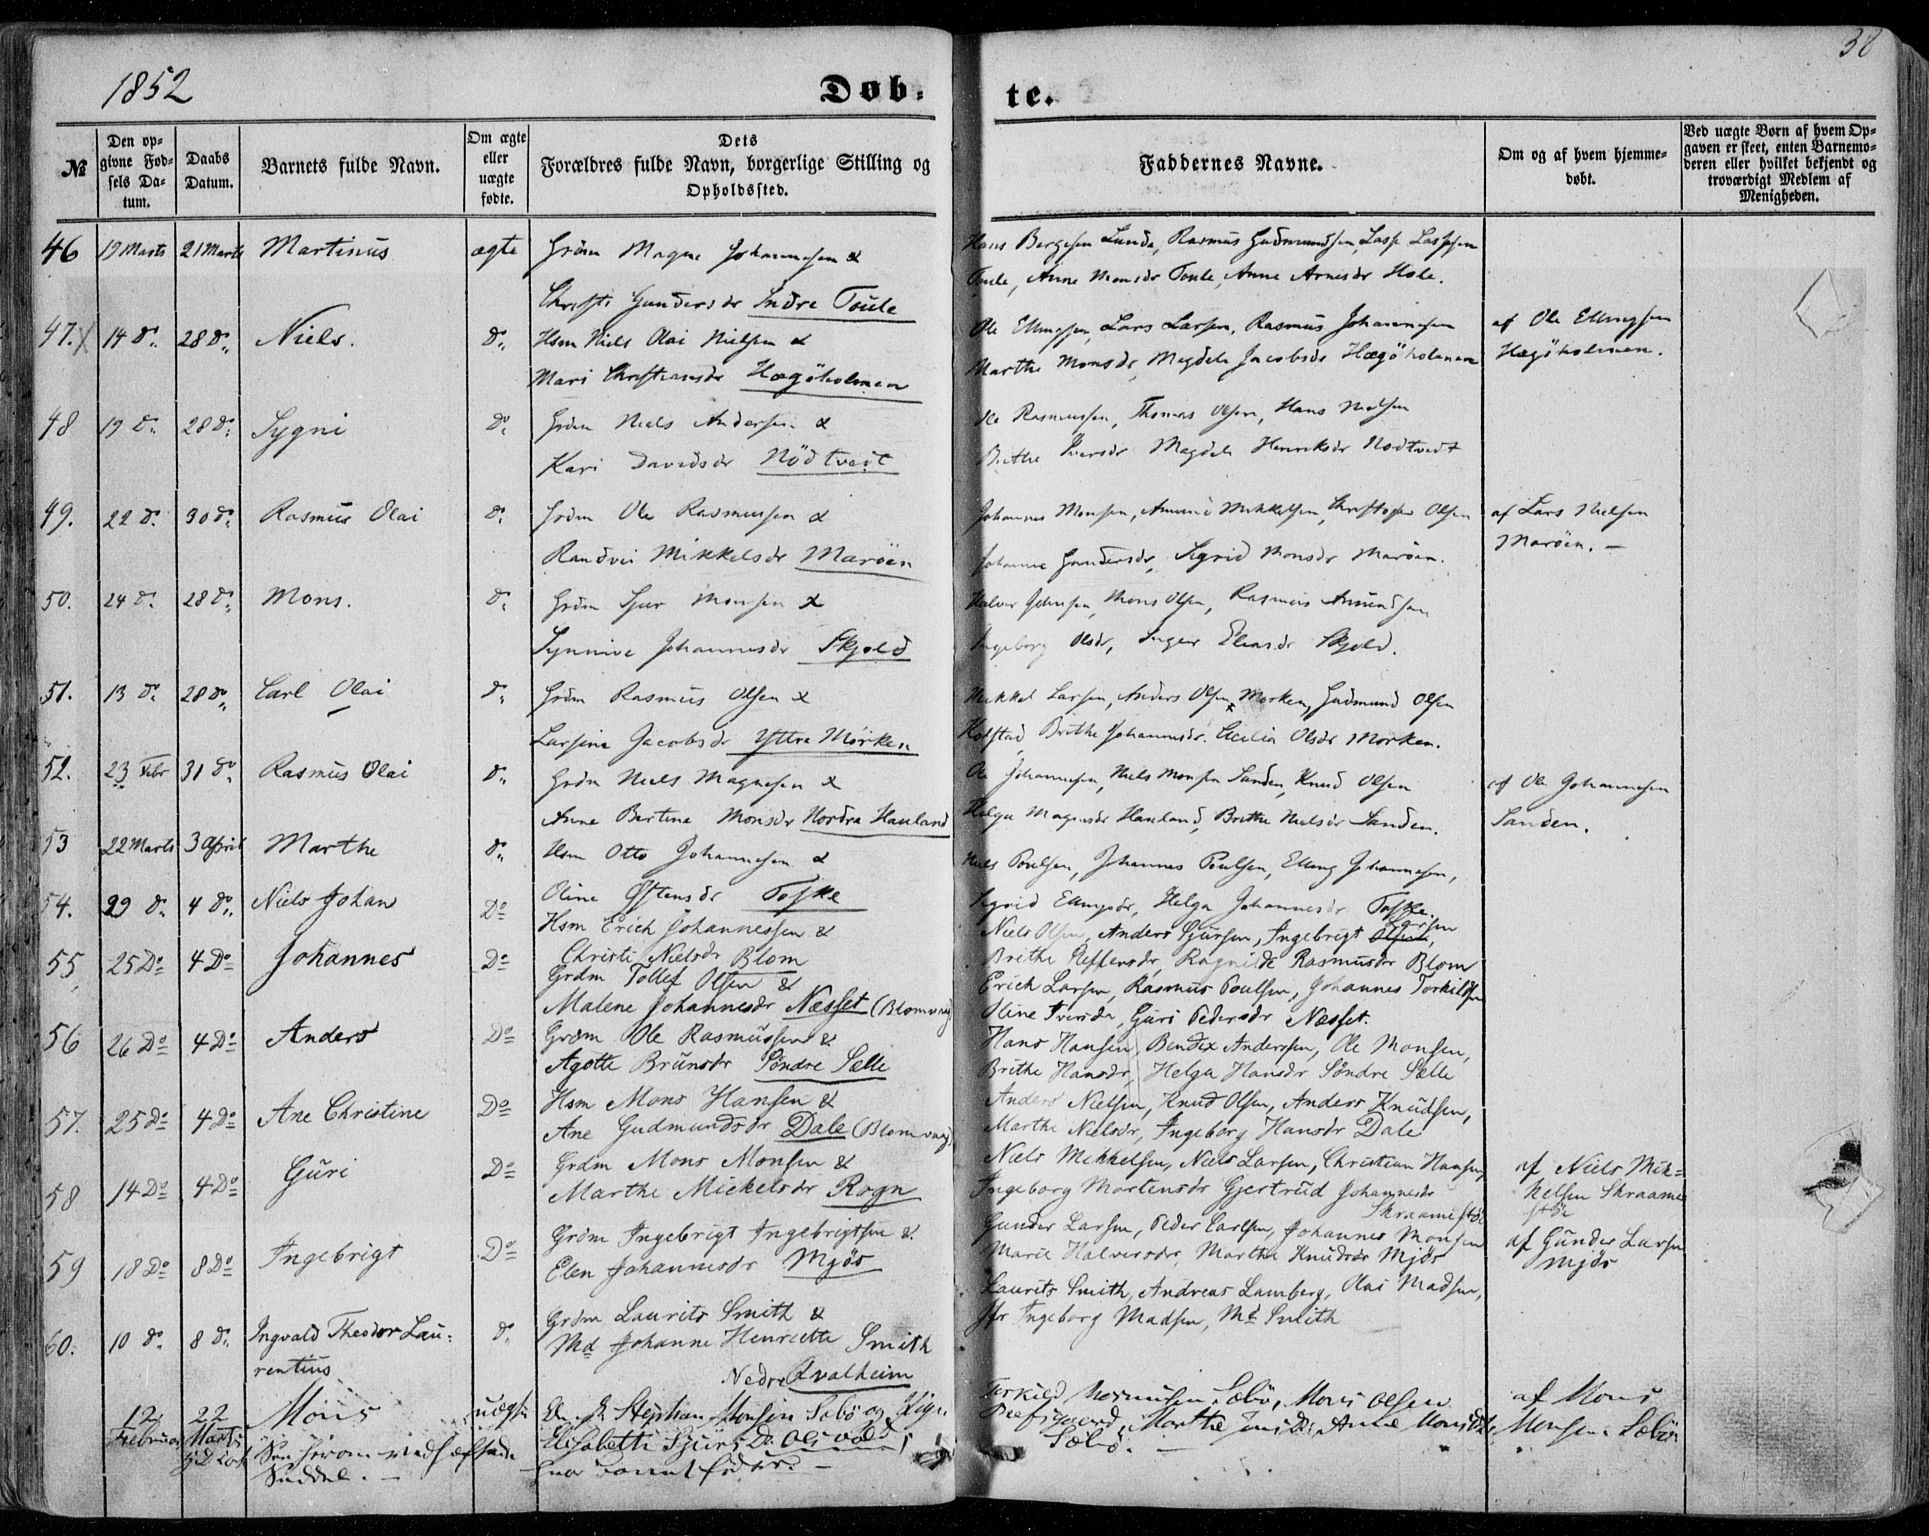 1852
Døb-
te.
№
Den opgivne Fødsels Datum.
Daabs Datum.
Barnets fulde Navn.
Om ægte eller uægte fødte.
Dets Forældres fulde Navn, borgerlige Stilling og Opholdssted.
Faddernes Navne.
Om og af hvem hjemmedøbt.
Ved uægte Børn af hvem Opgaven er skeet, enten Barnemoderen eller hvilket bekjendt og troværdigt Medlem af Menigheden.
46 19 Marts 21 Marts Martinus ægte Grdm Magne Johannesen &
Christi Gundersdr Indre Toule
Hans Børgesen Lunde, Rasmus Gudmundsen, Lasse Lassesen
Toule, Anne Monsdr Toule, Anne Arnesdr Hole.
47. 14 do. 28 do. Niels. do. Hsm Niels Olai Nielsen &
Mari Christiansdr Hægøholmen
Ole Ellingsen, Lars Larsen, Rasmus Johannesen
Marthe Monsdr, Magdela Jacobsdr Hægøholmen
af Ole Ellingsen
Hægøholmen.
48 19 do. 28 do. Sygni do. Grdm Niels Andersen &
Kari Davidsdr Nødtvedt
Ole Rasmussen, Thomas Olsen, Hans Nielsen
Brithe Iversdr Magdela Henriksdr Nødtvedt
49. 22 do. 30 do. Rasmus Olai do. Grdm Ole Rasmussen &
Randvei Mikkelsdr Marøen
Johannes Monsen, Amund Mikkelsen, Christopher Olsen
Johanne Gundersdr, Sigrid Monsdr Marøen.
af Lars Nielsen
Marøen. —
50. 24 do. 28 do. Mons. do. Grdm Sjur Monsen &
Synnive Johannesdr Skjold
Halvor Johnsen, Mons Olsen, Rasmus Amundsen
Ingeborg Olsdr, Inger Eliasdr Skjold.
51. 13 do. 28 do. Carl Olai do. Grdm Rasmus Olsen &
Larsine Jacobsdr Yttre Mørken
Mikkel Larsen, Anders Olsen Mørken, Gudmund Olsen
Holstad, Brithe Johannesdr. Cecilia Olsdr Mørken.
52. 23 Febr 31 do. Rasmus Olai do. Grdm Niels Magnesen &
Anne Bertine Monsdr Nordre Hauland
Ole Johannesen, Niels Monsen Sanden, Knud Olsen
Helga Magnesdr Hauland, Brithe Nielsdr Sanden.
af Ole Johannesen
Sanden.
53 22 Marts 3 April Marthe do. Hsm Otto Johannesen &
Oline Østensdr Toske
Niels Poulsen, Johannes Poulsen, Elling Johannesen,
Sigrid Ellingsdr, Helga Johannesdr Toske.
54. 29 do. 4 do. Niels Johan Do Hsm Erich Johannessen &
Christi Nielsdr Blom
Niels Olsen, Anders Sjursen, Ingebrigt Olsen, Larsen
Brithe Steffensdr, Ragnilde Rasmusdr Blom
55 25 Do 4 Do Johannes Do Grdm Tollef Olsen &
Malene Johannesdr Næsset (Blomvaag)
Erich Larsen, Rasmus Poulsen, Johannes Torkildsen
Oline Iversdr, Guri Pedersdr Næsset.
56 26 Do 4 Do Anders Do Grdm Ole Rasmussen &
Agotte Brunsdr Søndre Sælle
Hans Hansen, Bendix Andersen, Ole Monsen,
Brithe Hansdr, Helga Hansdr Søndre Sælle
57. 25 Do 4 Do Ane Christine Do Hsm Mons Hansen &
Ane Gudmundsdr Dale (Blomvaag)
Anders Nielsen, Knud Olsen, Anders Knudsen,
Marthe Nielsdr, Ingeborg Hansdr Dale
58 14 Do 4 Do Guri Do Grdm Mons Monsen &
Marthe Mickelsdr Rogn
Niels Mikkelsen, Niels Larsen, Christian Hansen,
Ingeborg Mortensdr Gjertrud Johannesdr
Skraamestøe
af Niels Mik=
kelsen Skraame
støe
59 18 Do 8 Do Ingebrigt Do Grdm Ingebrigt Ingebrigtsen &
Elen Johannesdr Mjøs
Gunder Larsen, Peder Carlsen, Johannes Monsen
Marie Halversdr, Marthe Knudsdr Mjøs
af Gunder Larsen
Mjøs
60. 10 do. 8 do. Ingvald Theodor Lau-
rentius do. Grdm Laurits Smith &
Md Johanne Henriette Smith
Nedre Qvalheim
Laurits Smith, Andreas Lamberg, Olai Madsen,
Jfr Ingeborg Madsen, Md Smith
12 Februar 22 Marts Mons uægte Stephan Monsen Sæbø og Pige
Elisabeth Sjurs Dr
Sæbø.
af Mons
Monsen Sæbø